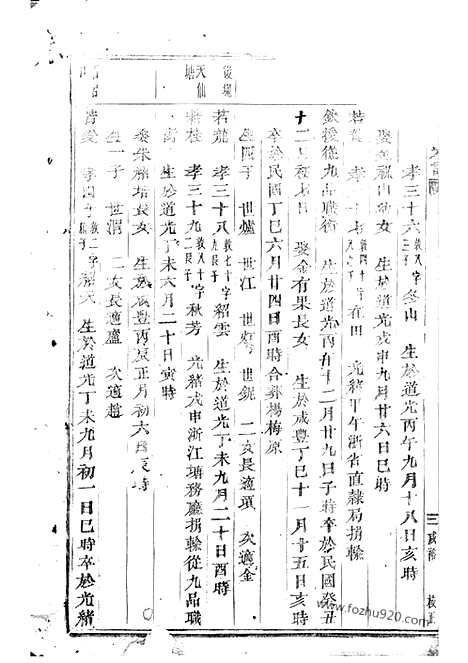 孝三十六 敦八 三子 字 冬山 生於道光丙午九月十八日亥時
娶 福山 女 生於道光戊申九月廿六日巳時
若 孝三十七 敦四十 字 在田 光緒甲午浙省直隸局捐輸
欽授從九品職銜 生於道光丙午十二月廿九日子時卒於民國癸丑
十二月初七日 娶金有果長女 生於咸豐丁巳十一月廿五日亥時
卒於民國丁巳六月廿四日酉時合葬楊梅原
生四子 世爐 世江 世 世鋭 二女長適項 次適金
後塢
若龍 孝三十八 敦七十 長子 字 紹雲 生於道光丁未九月二十日酉時
天仙塘
若桂 孝三十九 敦八十 二子 字 秋芳 光緒戊申浙江塘務廳捐輸從九品職
銜 生於道光丁未六月二十日寅時
娶朱 培長女 生於咸豐丙辰正月初六日辰時
生一子 世渭 二女長適盧 次適趙
孝四十 敦二 長子 字 紹 生於道光丁未九月初一日巳時卒於光緒
www.fozhu920.com